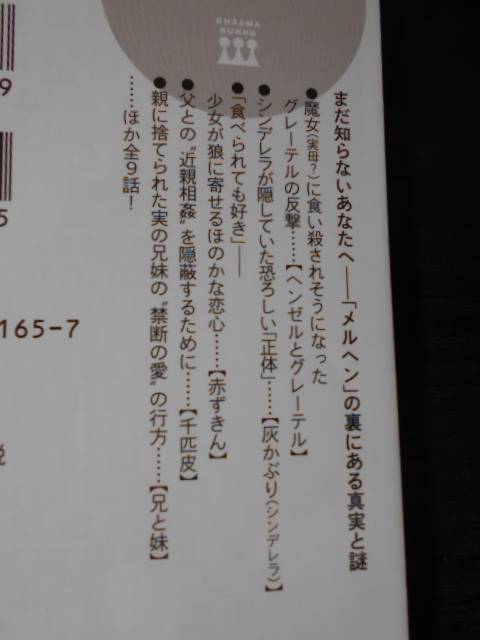 OHSAMA
BUNKO
まだ知らないあなたへ――「メルヘン」の裏にある真実と謎
●魔女(実母?)に食い殺されそうになった
グレーテルの反撃……【ヘンゼルとグレーテル】
●シンデレラが隠していた恐ろしい「正体」……【灰かぶり(シンデレラ)】
●「食べられても好き」――
少女が狼に寄せるほのかな恋心……【赤ずきん】
●父との〝近親相姦〟を隠蔽するために……【千匹皮】
●親に捨てられた実の兄妹の〝禁断の愛〟の行方……【兄と妹】
……ほか全9話!
9
5
165-7